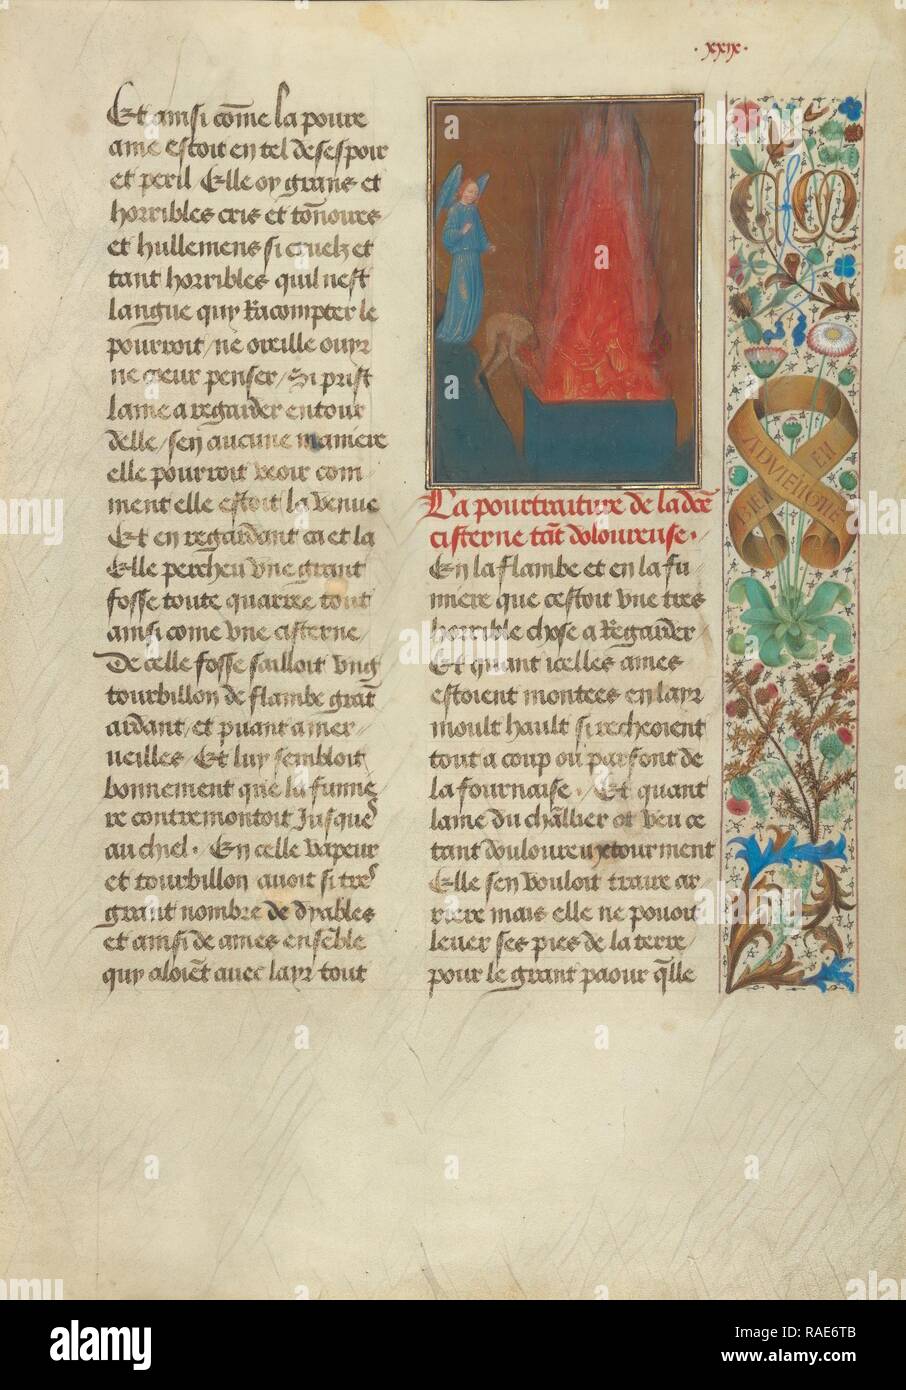 ·xxix·
Et ainsi cõme la poure
ame estoit en tel desespoir
et peril Elle oy grans et
horribles cris et tõnoires
et hullemens si cruelz et
tant horribles quil nest
langue quy Racompter le
pourroit / ne oreille ouyr
ne cœur penser / Si prist
lame a regarder entour
delle / sen aucune maniere
elle pourroit veoir com
ment elle estoit la venue
Et en regardant ca et la
Elle percheu vne grant
fosse toute quarree tout
ainsi come vne cisterne /
De celle fosse sailloit vng
tourbillon de flambe grãt
ardant / et puant a mer //
ueilles / Et luy sembloit
bonnement que la fumie
re contremontoit Jusques
au chiel · En celle vapeur
et tourbillon auoit si tres
grant nombre de dyables
et ainsi de ames ensẽble
quy aloiẽt auec layr tout
La pourtraiture de la dce
cisterne tãt doloureuse ·
En la flambe et en la fu
miere que cestoit vne tres
horrible chose a Regarder
Et quant icelles ames
estoient montees en layr
moult hault si recheoient
tout a coup ou parfont de
la fournaise · Et quant
lame du chãllier ot veu ce
tant douloureux tourment
Elle sen vouloit traire ar
riere mais elle ne pouoit
leuer ses pies de la terre /
pour le grant paour q̃lle
BIEN
ADVIENGNE
EN
alamy
Image ID: RAE6TB
www.alamy.com